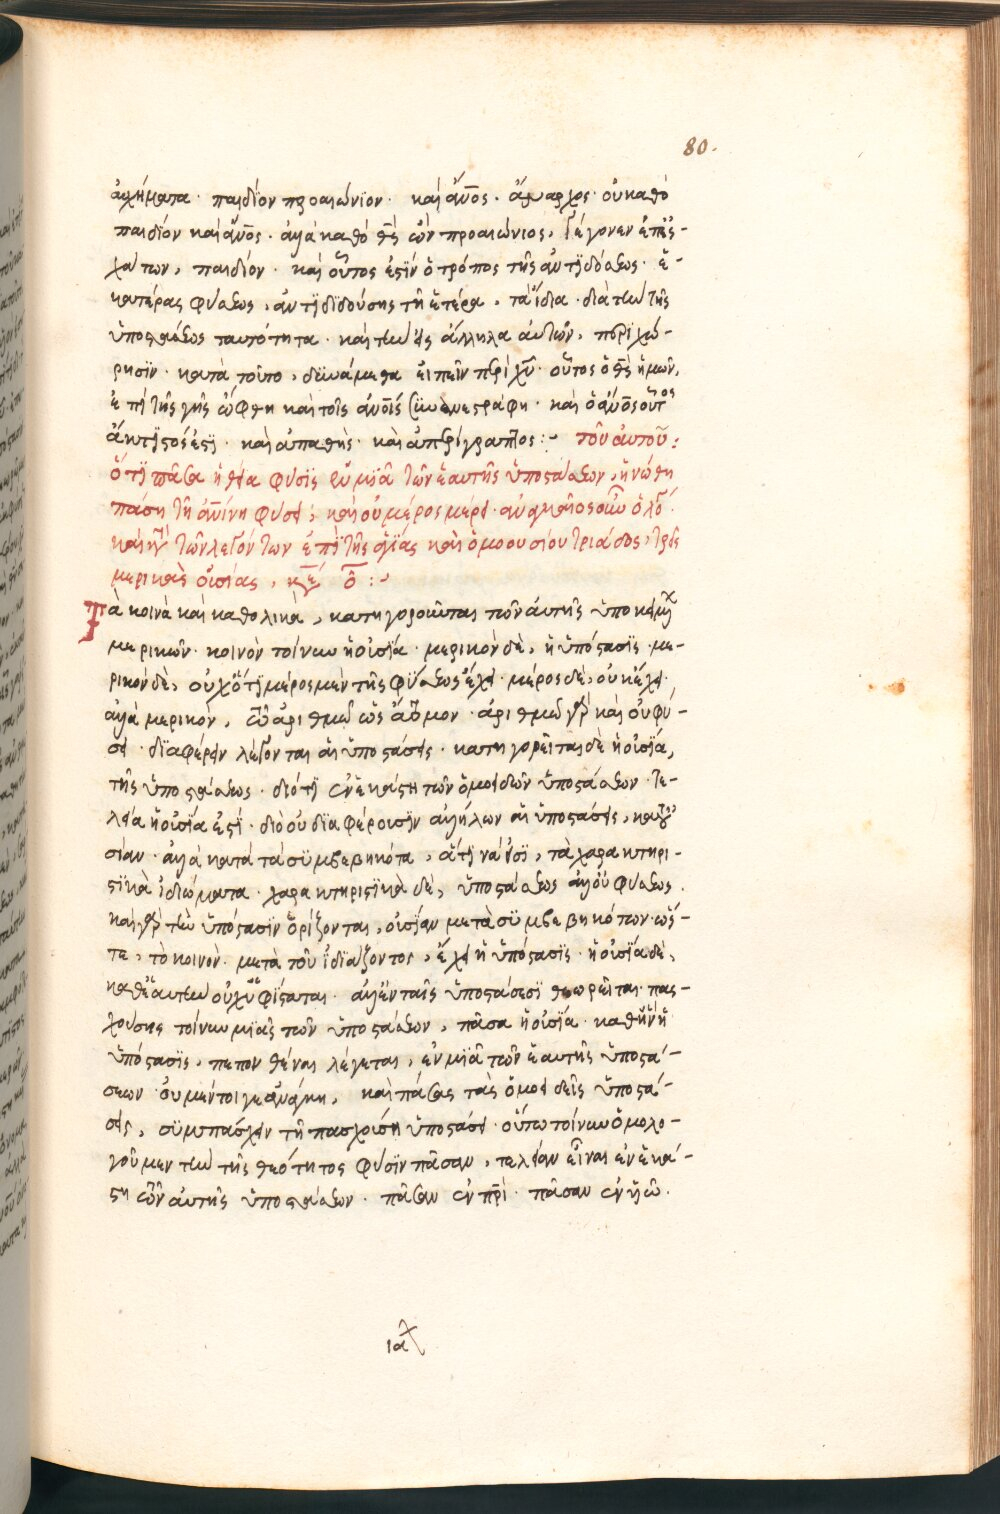 80.
αυχήματα · παιδίον προαιώνιον · καὶ ἄνος · ἄναρχος · οὐ καθὸ
παιδίον καὶ ἄνος · ἀλλὰ καθὸ θς ὢν προαιώνιος, γέγονεν ἐπ' ἐσ-
χάτων, παιδίον · καὶ οὗτος ἐστὶν ὁ τρόπος τῆς ἀντιδόσεως · ἑ-
κατέρας φύσεως, ἀντιδιδούσης τῇ ἑτέρα, τὰ ἴδια · διὰ τὴν τῆς
ὑποστάσεως ταυτότητα · καὶ τὴν εἰς ἄλληλα αὐτῶν, περιχώ-
ρησιν · κατὰ τοῦτο, δυνάμεθα εἰπεῖν περὶ χυ · οὗτος ὁ θς ἡμῶν,
ἐπὶ τῆς γῆς ὤφθη καὶ τοῖς ἀνοις συνανεστράφη · καὶ ὁ ἄνος οὗτος
ἄκτιστός ἐστι · καὶ ἀπαθὴς · καὶ ἀπερίγραπτος :- τοῦ αὐτοῦ :
ὅτι πᾶσα ἡ θεία φύσις ἐν μιᾶ τῶν ἑαυτῆς ὑποστάσεων, ἡνώθη
πάση τῆ ἀνίνη φύσει, καὶ οὐ μέρος μέρει ·
καὶ τῶν λεγόντων ἐπὶ τῆς ἁγίας καὶ ὁμοουσίου τριάδος, τρεῖς
μερικὰς οὐσίας, :-
Τὰ κοινὰ καὶ καθολικὰ, κατηγοροῦνται τῶν αὐτῆς ὑποκειμ
μερικῶν · κοινὸν τοίνυν ἡ οὐσία · μερικὸν δὲ, ἡ ὑπόστασις · με-
ρικὸν δὲ, οὐχ ὅτι μέρος μὲν τῆς φύσεως ἔχει · μέρος δὲ, οὐκ ἔχει ·
ἀλλὰ μερικὸν, τῶ ἀριθμῶ ὡς ἄτομον · ἀριθμῶ γὰρ καὶ οὐ φύ-
σει · διαφέρειν λέγονται αἱ ὑποστάσεις · κατηγορεῖται δὲ ἡ οὐσία,
τῆς ὑποστάσεως · διότι ἐν ἑκάστη τῶν ὁμοειδῶν ὑποστάσεων · τε-
λεία ἡ οὐσία ἐστὶ · διὸ οὐ διαφέρουσιν ἀλλήλων αἱ ὑποστάσεις, κατ' οὐ
σίαν · ἀλλὰ κατὰ τὰ συμβεβηκότα, ἅτινά εἰσι, τὰ χαρακτηρι-
στικὰ ἰδιώματα · χαρακτηριστικὰ δὲ, ὑποστάσεως ἀλλ' οὐ φύσεως ·
καὶ γὰρ τὴν ὑπόστασιν ὁρίζονται, οὐσίαν μετὰ συμβεβηκότων ὥσ-
τε, τὸ κοινὸν · μετὰ τοῦ ἰδιάζοντος, ἔχει ἡ ὑπόστασις · ἡ οὐσία δὲ,
καθ' ἑαυτὴν οὐχ ὑφίσταται · ἀλλ' ἐν ταῖς ὑποστάσεσι θεωρεῖται · πασ-
χούσης τοίνυν μιᾶς τῶν ὑποστάσεων, πᾶσα ἡ οὐσία · καθ' ἣν ἡ
ὑπόστασις, πεπονθέναι λέγεται, ἐν μιᾶ τῶν ἑαυτῆς ὑποστά-
σεων · οὐ μέντοι γε ἀνάγκη, καὶ πάσας τὰς ὁμοειδεῖς ὑποστά-
σεις, συμπάσχειν τῆ πασχούση ὑποστάσει · οὕτω τοίνυν ὁμολο-
γοῦμεν τὴν τῆς θεότητος φύσιν πᾶσαν, τελείαν εἶναι ἐν ἑκά-
στη τῶν αὐτῆς ὑποστάσεων · πᾶσαν ἐν πρι · πᾶσαν ἐν υἱῶ ·
ια